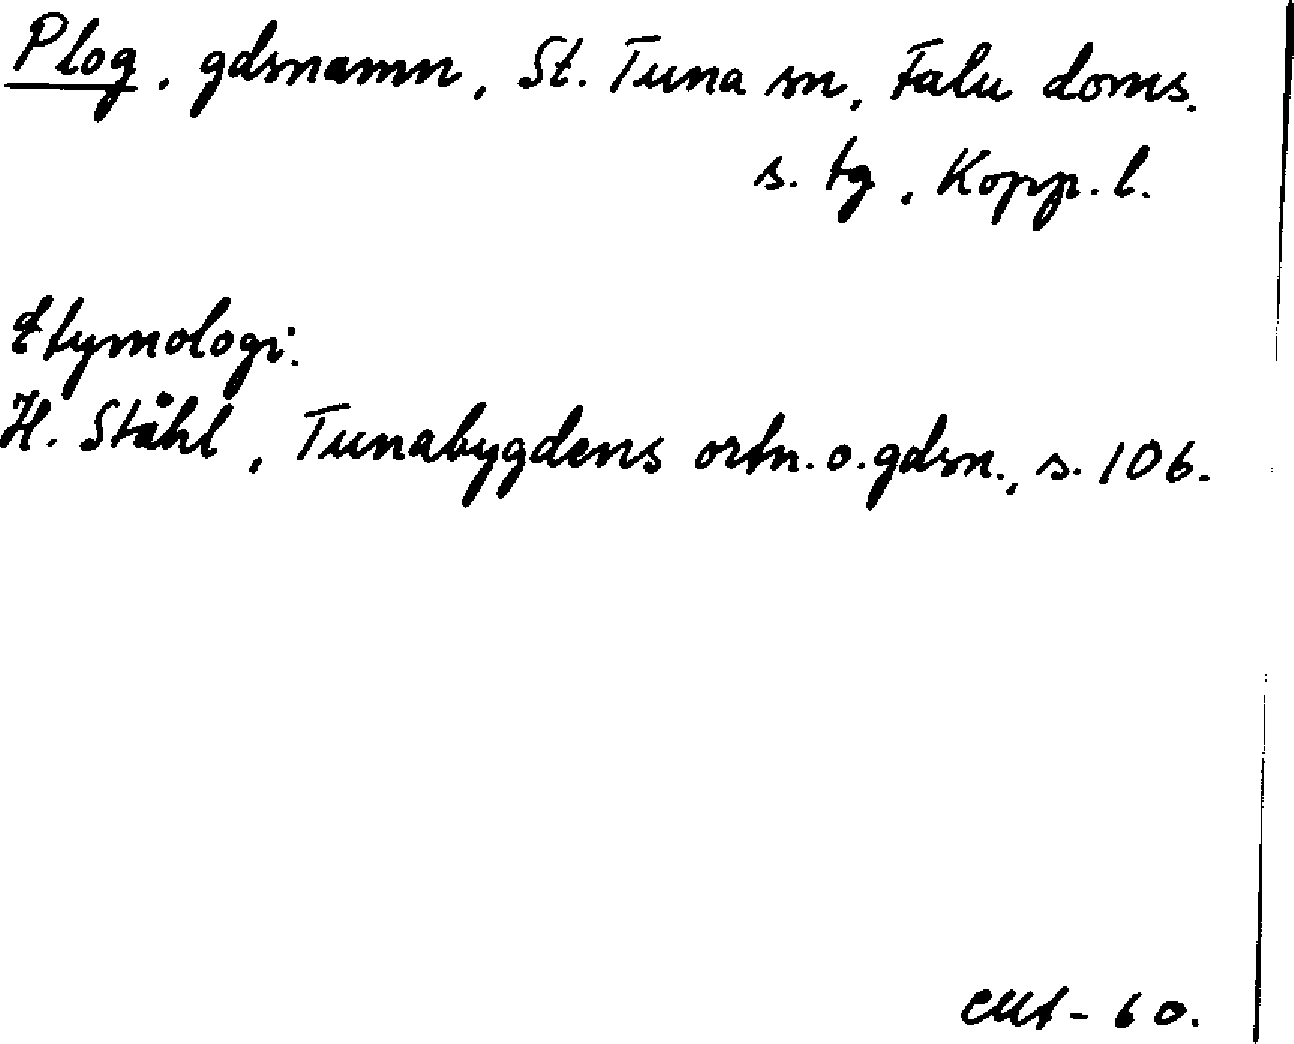 Plog, gdsnamn, St. Tuna sn, Falu doms.
s. tg, Kopp. l.
Etymologi:
H. Ståhl, Tunabygdens ortn. o. gdsn., s. 106.
60.